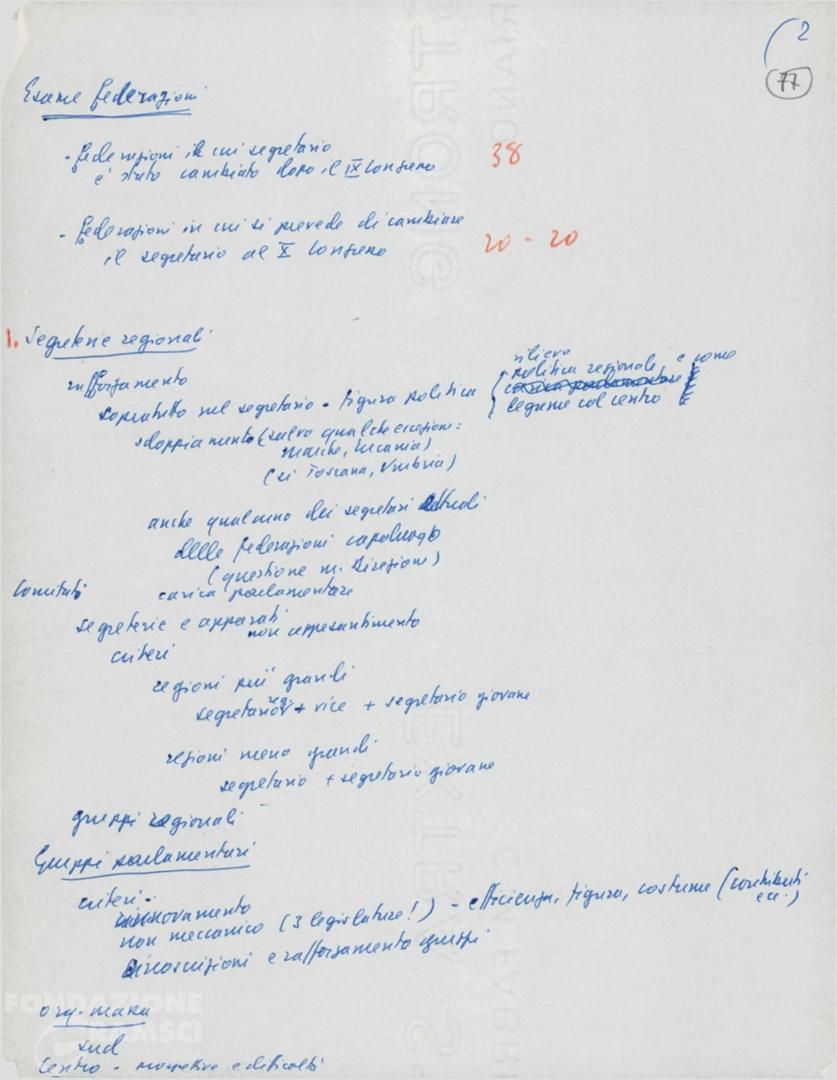 2
77
Esame federazioni
- federazioni in cui segretario
è stato cambiato dopo il IX Congresso 38
- federazioni in cui si prevede di cambiare
il segretario al X Congresso 20 - 20
1. Segreterie regionali
rafforzamento
sopratutto nel segretario - figura politica
rilievo
politica regionale e come
legame col centro
sdoppiamento (salvo qualche eccezione:
Marche, Lucania)
(si Toscana, Umbria)
anche qualcuno dei segretari attuali
delle federazioni capoluogo
(questione m. Direzione)
Comitati carica parlamentare
segreterie e apparati
non appesantimento
criteri
regioni più grandi
segretario reg + vice + segretario giovane
regioni meno grandi
segretario + segretario giovane
gruppi regionali
Gruppi parlamentari
criteri:
rinnovamento
non meccanico (3 legislature!) - efficienza, figura, costume (contributi
ecc.)
circoscrizioni e rafforzamento gruppi
org. massa
sud
Centro - prospettive e difficoltà
FONDAZIONE
GRAMSCI